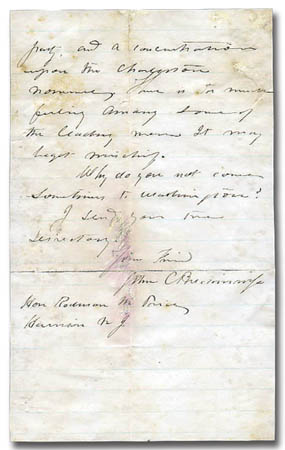 party, and a concentration
upon the Charleston
nominee, there is so much
feeling among some of
the leading men It may
beget mischief.
Why do you not come
sometimes to Washington?
I send you the
Directory.
Your Friend
John C Breckinridge
Hon
Harrison N J